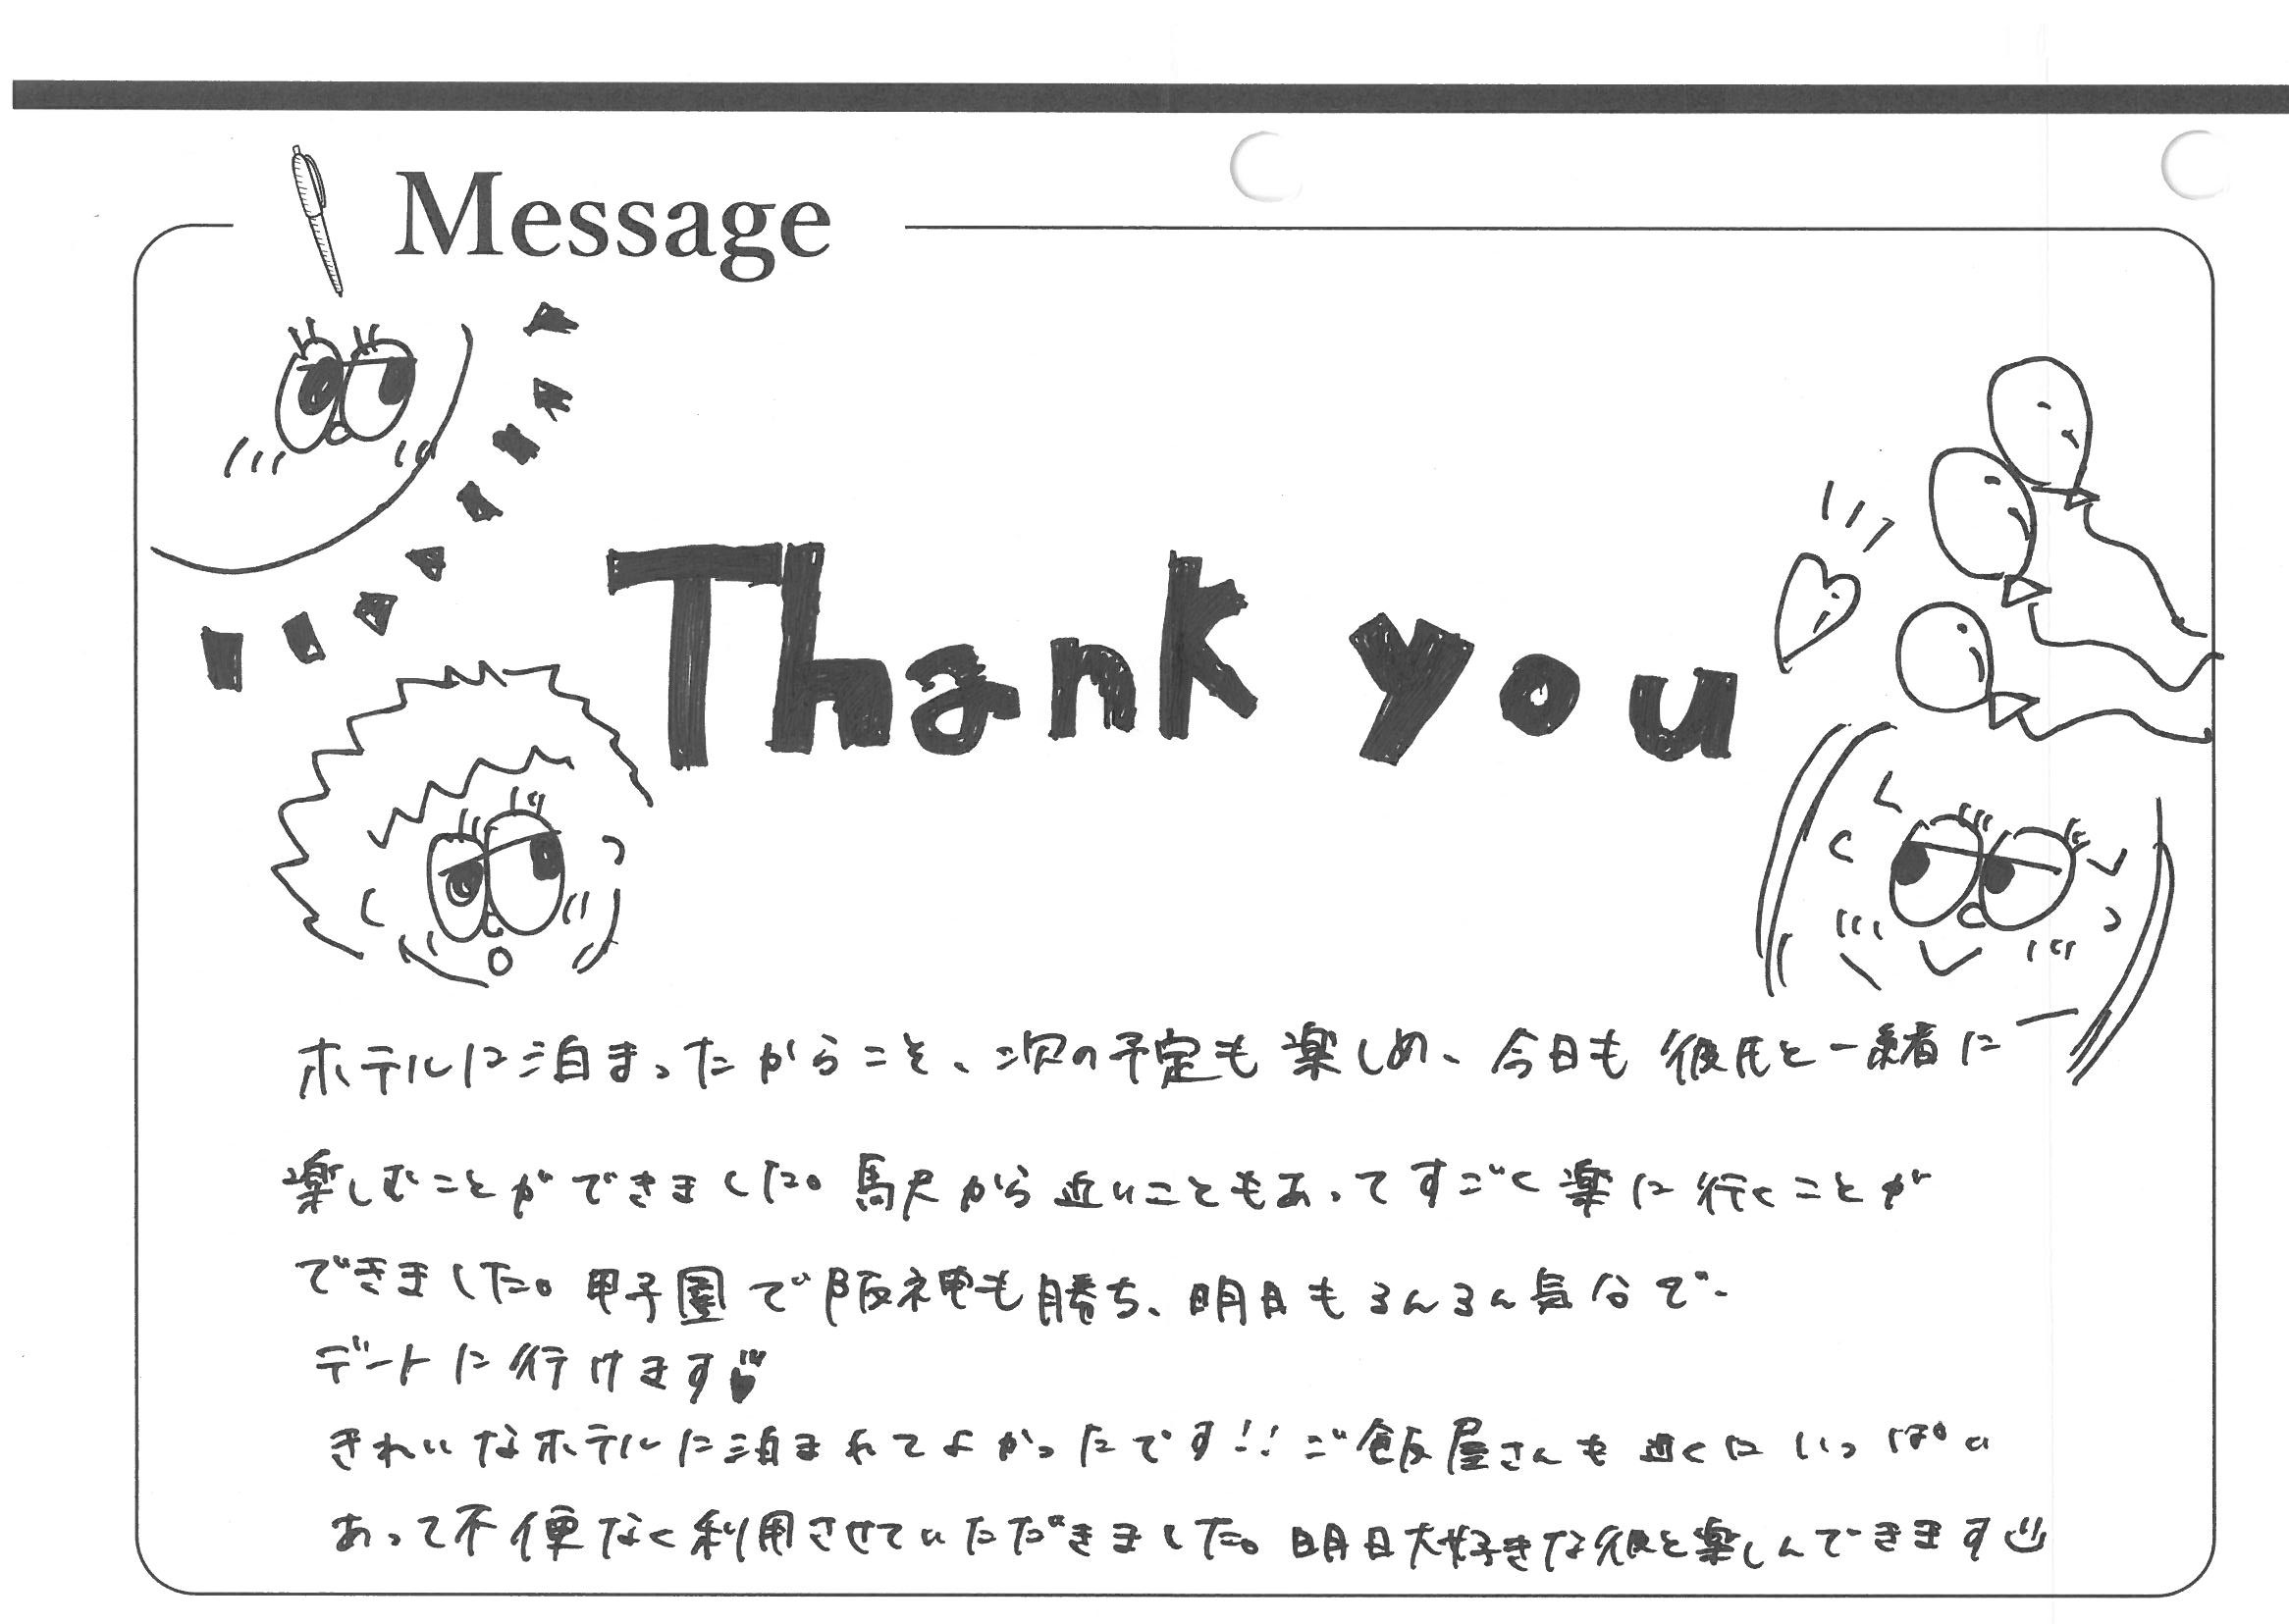 Message
Thank you
ホテルに泊まったからこそ、次の予定も楽しめ、今日も彼氏と一緒に
楽しむことができました。馬尺から近いこともあってすごく楽に行くことが
できました。甲子園で阪神も勝ち、明日もるんるん気分で
デートに行けます
きれいなホテルに泊まれてよかったです!!ご飯屋さんも近くにいっぱい
あって不便なく利用させていただきました。明日大好きな彼と楽しんできます